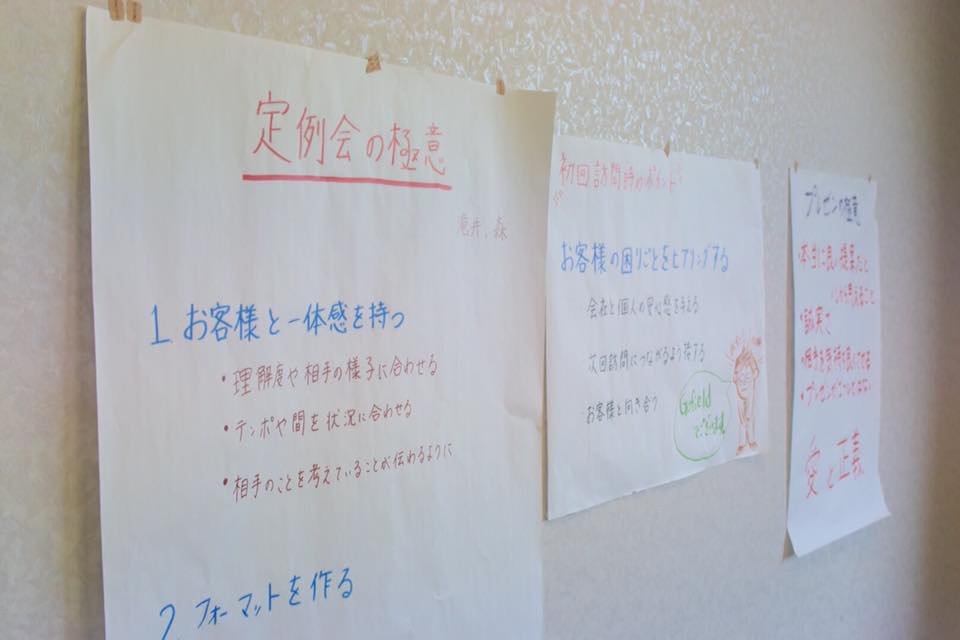 定例会の極意
滝井、森
1 お客様と一体感を持つ
・理解度や相手の様子に合わせる
・テンポや間を状況に合わせる
・相手のことを考えていることが伝わるように
2 フォーマットを作る
初回訪問時のポイント
お客様の困りごとをヒアリングする
・会社と個人の安心感を与える
次回訪問につながるよう接する
・お客様と向き合う
Gofield
でございます
プレゼンの極意
・本当に良い提案だと
心から思えること
・誠実さ
・相手を気持ち良くさせる
・プレゼンがゴールではない
愛と正義